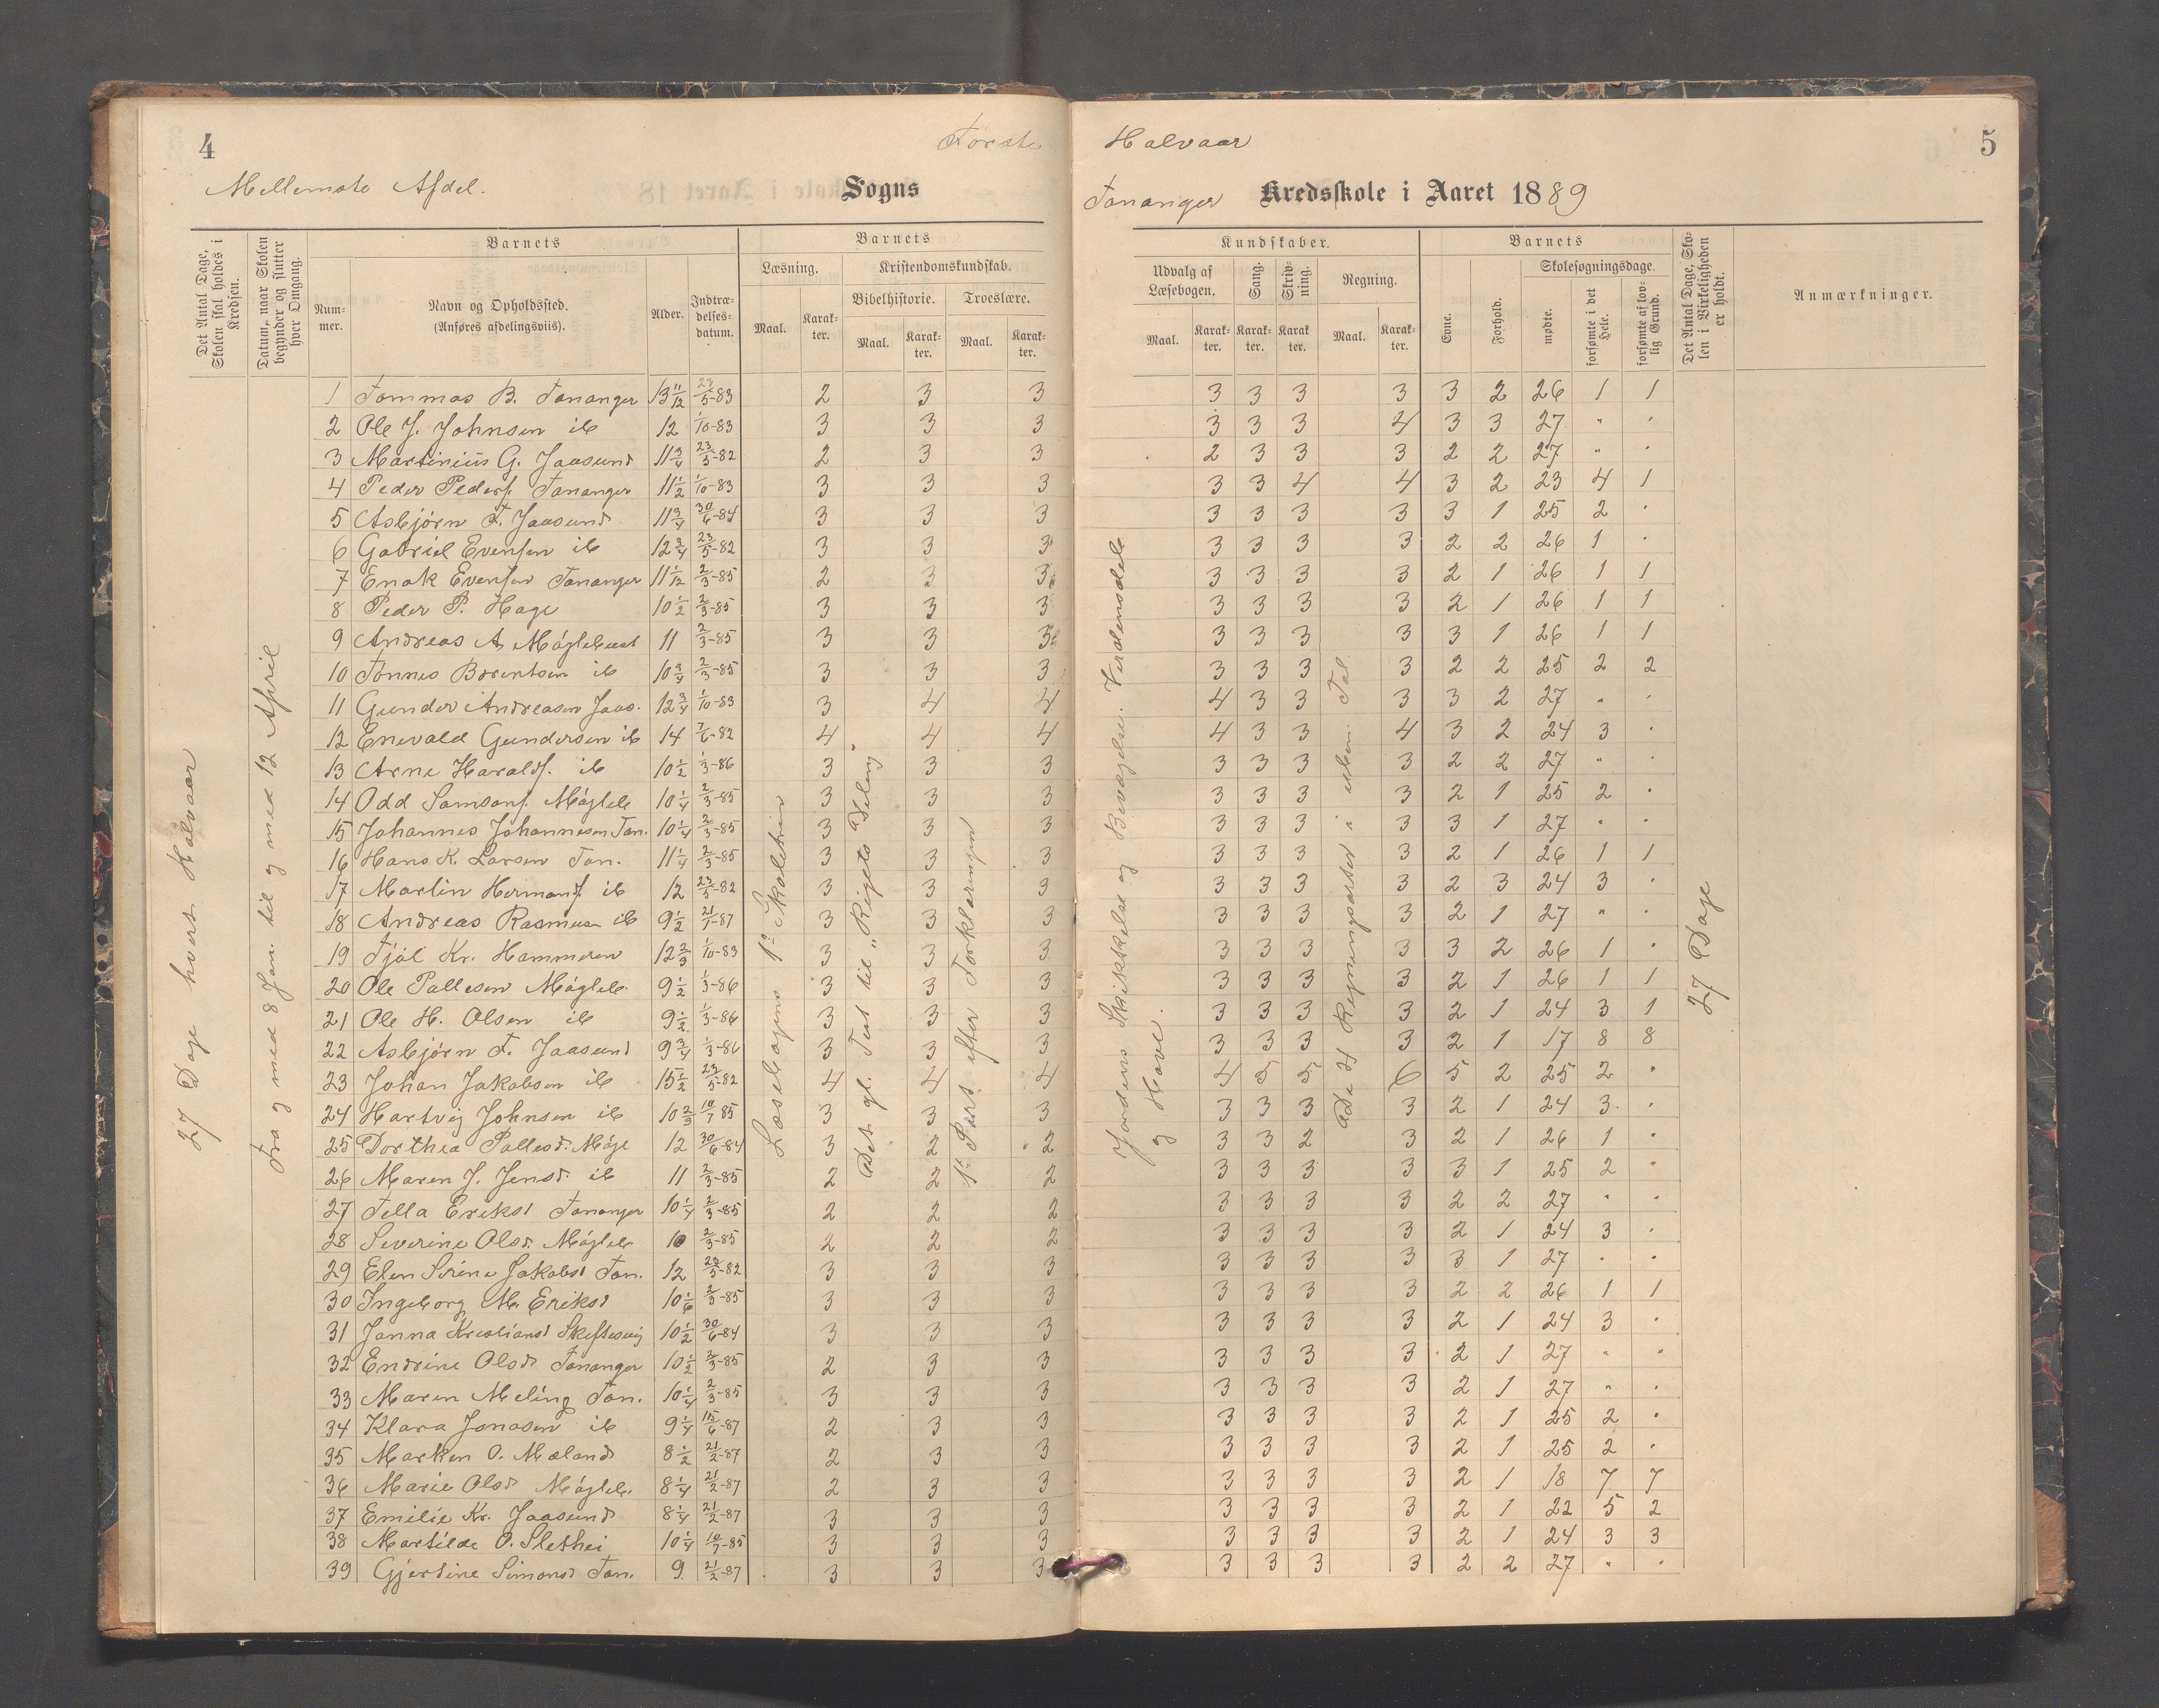 4
Første
Mellemste Afdel.
Sogns
Det Antal Dage, Skolen skal holdes i Kredsen.
Datum, naar Skolen begynder og slutter hver Omgang.
Barnets
Nummer.
Navn og Opholdssted.
(Anføres afdelingsviis).
Alder.
Indtrædelsesdatum.
Barnets
Læsning.
Kristendomskundskab.
Bibelhistorie.
Troeslære.
Maal.
Karakter.
Maal.
Karakter.
Maal.
Karakter.
27 Dage hvert Halvaar
Fra og med 8 Jan. til og med 12 April
Læsebogens 1ste Skoletrin
Det gl. Test til „Rigets Deling“
1ste Part efter Forklaringen
1 Tommas B. Tananger 13 11/12 23/5-83 2 3 3
2 Ole J. Johnsen ib 12 1/10-83 3 3 3
3 Martinius G. Jaasund 11 3/4 23/5-82 2 3 3
4 Peder Peders. Tananger 11 1/2 1/10-83 3 3 3
5 Asbjørn T. Jaasund 11 3/4 30/6-84 3 3 3
6 Gabriel Evensen ib 12 3/4 23/5-82 3 3 3
7 Enok Evensen Tananger 11 1/12 2/3-85 2 3 3
8 Peder P. Hage 10 1/2 2/3-85 3 3 3
9 Andreas A. Møglebust 11 2/3-85 3 3 3
10 Tønnes Børentsen ib 10 3/4 2/3-85 3 3 3
11 Gunder Andreasen Jaas. 12 3/4 1/10-83 3 4 4
12 Enevald Gundersen ib 14 7/6-82 4 4 4
13 Arne Haralds. ib 10 1/2 1/3-86 3 3 3
14 Odd Samsons. Mögleb 10 1/4 2/3-85 3 3 3
15 Johannes Johannesen Tan. 10 1/4 2/3-85 3 3 3
16 Hans K. Larsen Tan. 11 1/4 2/3-85 3 3 3
17 Martin Hermans. ib 12 23/5-82 3 3 3
18 Andreas Rasmusn ib 9 1/2 21/1-87 3 3 3
19 Tjøl Kr. Hammeren 12 2/3 1/10-83 3 3 3
20 Ole Pallesen Mögleb. 9 1/2 1/3-86 3 3 3
21 Ole H. Olsen ib 9 1/2 1/3-86 3 3 3
22 Asbjørn T. Jaasund 9 3/4 1/3-86 3 3 3
23 Johan Jakobsen ib 15 1/2 23/5-82 4 4 4
24 Hartvig Johnsen ib 10 2/3 10/7 85 3 3 3
25 Dorthea Pallesd. Mögl 12 30/6-84 3 2 2
26 Maren J. Jensd. ib 11 2/3-85 2 2 2
27 Tella Eriksd Tananger 10 1/4 2/3-85 2 2 2
28 Severine Olsd. Mögleb 10 2/3-85 2 2 2
29 Elen Serine Jakobsd Tan. 12 23/5-82 3 3 3
30 Ingeborg M. Eriksd 10 1/6 2/3-85 3 3 3
31 Janna Kristiansd Skeftesvig 10 1/2 30/6-84 3 3 3
32 Endrine Olsd. Tananger 10 1/2 2/3-85 2 3 3
33 Maren Meling Tan. 10 1/4 2/3-85 3 3 3
34 Klara Jonasen ib 9 1/4 15/6-87 2 3 3
35 Marken O. Mæland 8 1/2 21/2-87 2 3 3
36 Marie Olsd Mögleb. 8 1/4 21/2-87 2 3 3
37 Emilie Kr. Jaasund 8 1/4 21/2-87 3 3 3
38 Martilde O. Slethei 10 1/4 10/7-85 3 3 3
39 Gjertine Simonsd Tan. 9 21/2-87 3 3 3
Halvaar
5
Tananger Kredsskole i Aaret 1889
Kundskaber.
Udvalg af Læsebogen.
Sang.
Skrivning.
Regning.
Maal.
Karakter.
Karakter.
Karakter.
Maal.
Karakter.
Barnets
Evne.
Forhold.
Skolesøgningsdage.
mødte.
forsømte i det Hele.
forsømte af lovlig Grund.
Det Antal Dage, Skolen i Virkeligheden er holdt.
Anmærkninger.
Jordens Skikkelse og Bevægelse. Verdensdele
og Have.
De 4 Regningsarter i ubên. Tal
27 Dage
3 3 3 3 3 2 26 1 1
3 3 3 4 3 3 27 " "
2 3 3 3 2 2 27 " "
3 3 4 4 3 2 23 4 1
3 3 3 3 3 1 25 2 "
3 3 3 3 2 2 26 1 "
3 3 3 3 2 1 26 1 1
3 3 3 3 2 1 26 1 1
3 3 3 3 3 1 26 1 1
3 3 3 3 2 2 25 2 2
4 3 3 3 3 2 27 " "
4 3 3 4 3 2 24 3 "
3 3 3 3 2 2 27 " "
3 3 3 3 2 1 25 2 "
3 3 3 3 3 1 27 " "
3 3 3 3 2 1 26 1 1
3 3 3 3 2 3 24 3 "
3 3 3 3 2 1 27 " "
3 3 3 3 3 2 26 1 "
3 3 3 3 2 1 26 1 1
3 3 3 3 2 1 24 3 1
3 3 3 3 2 1 17 8 8
4 5 5 6 5 2 25 2 "
3 3 3 3 2 1 24 3 "
3 3 2 3 2 1 26 1 "
3 3 3 3 3 1 25 2 "
3 3 3 3 2 2 27 " "
3 3 3 3 2 1 24 3 "
3 3 3 3 3 1 27 " "
3 3 3 3 2 2 26 1 1
3 3 3 3 2 1 24 3 "
3 3 3 3 2 1 27 " "
3 3 3 3 2 1 27 " "
3 3 3 3 2 1 25 2 "
3 3 3 3 2 1 25 2 "
3 3 3 3 2 1 18 7 7
3 3 3 3 2 1 22 5 2
3 3 3 3 2 1 24 3 3
3 3 3 3 2 2 27 " "